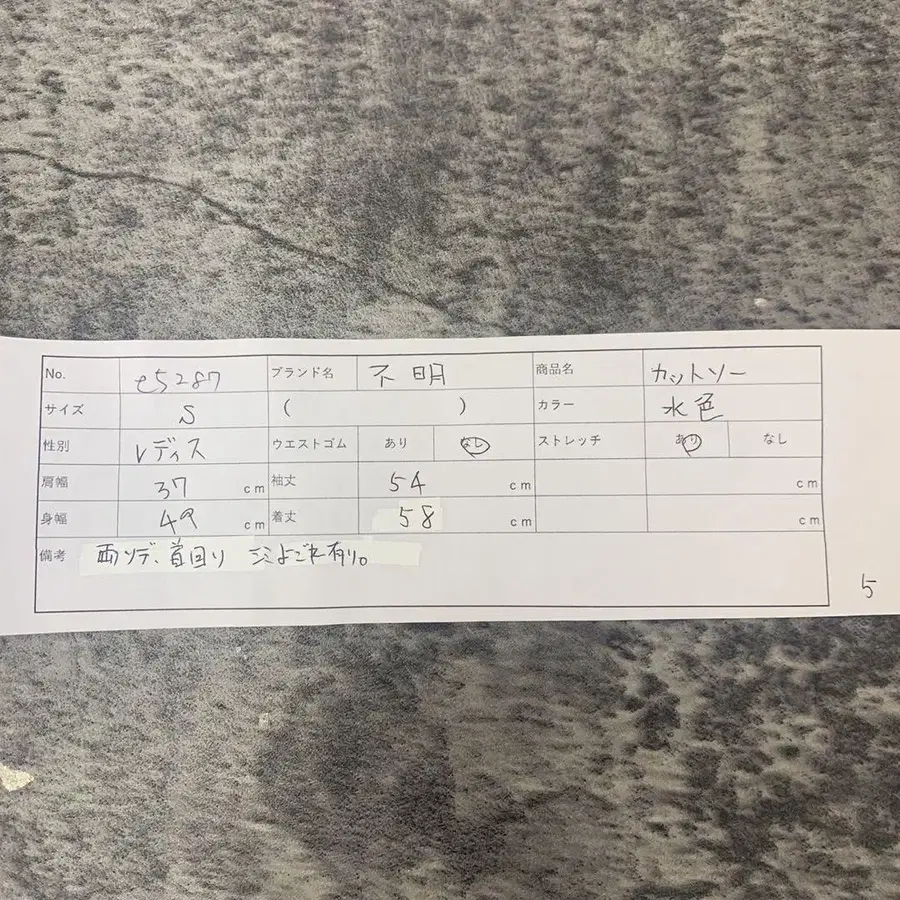 No. e5287 ブランド名 不明 商品名 カットソー
サイズ S ( ) カラー 水色
性別 レディス ウエストゴム あり なし ストレッチ あり なし
肩幅 37 cm 袖丈 54 cm cm
身幅 49 cm 着丈 58 cm cm
備考 両ソデ、首回り よごれ有り。
5